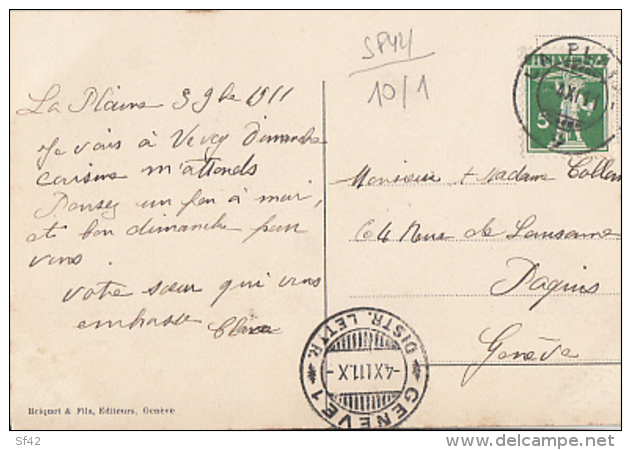 SP44
10/1
La Plaine 3 9bre 1911
Je vais à Vevey Dimanche
cousine m'attends
Pensez un peu à moi,
et bon dimanche pour
vous.
votre sœur qui vous
embrasse Clara
Monsieur & Madame Collem
64 Rue de Lausanne
Paquis
Genève
HELVETIA
5
LA PLAINE
4 XI 11
DISTR. LETTR.
-4.XI.11.X-
GENÈVE 1
Briquet & Fils, Editeurs, Genève
Sf42
delcampe.net